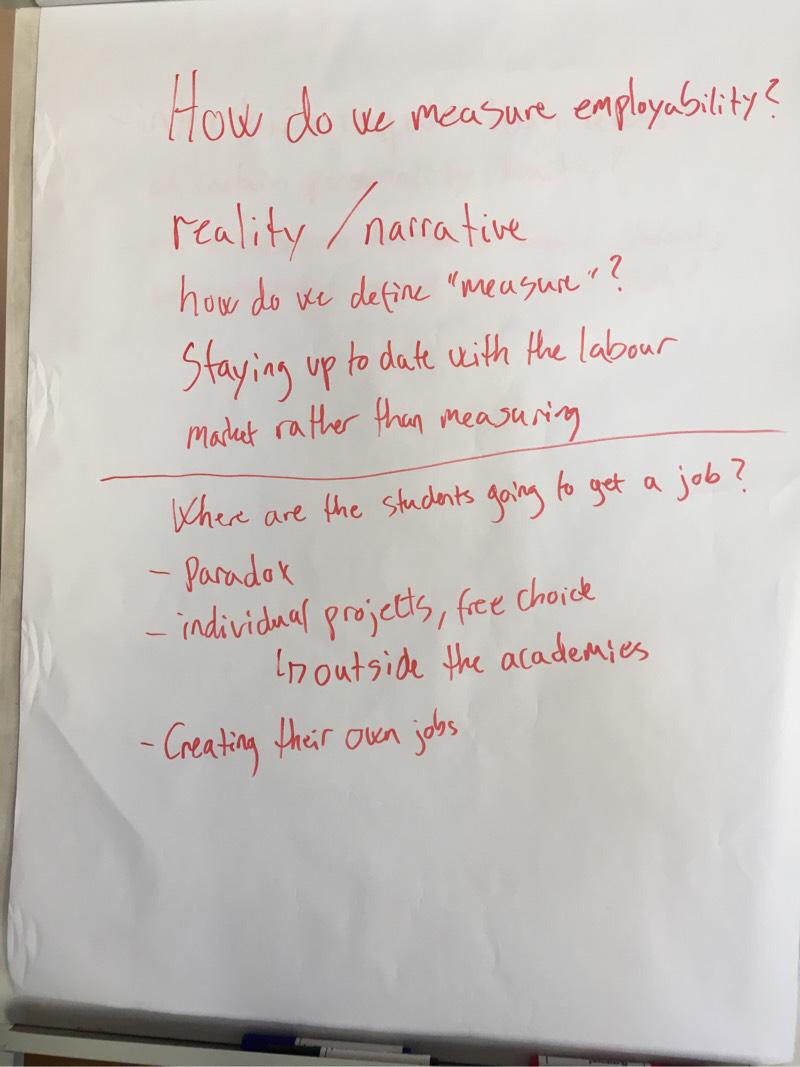 How do we measure employability?
reality / narrative
how do we define "measure"?
Staying up to date with the labour
market rather than measuring
Where are the students going to get a job?
- Paradox
- individual projects, free choice
↳ outside the academies
- Creating their own jobs